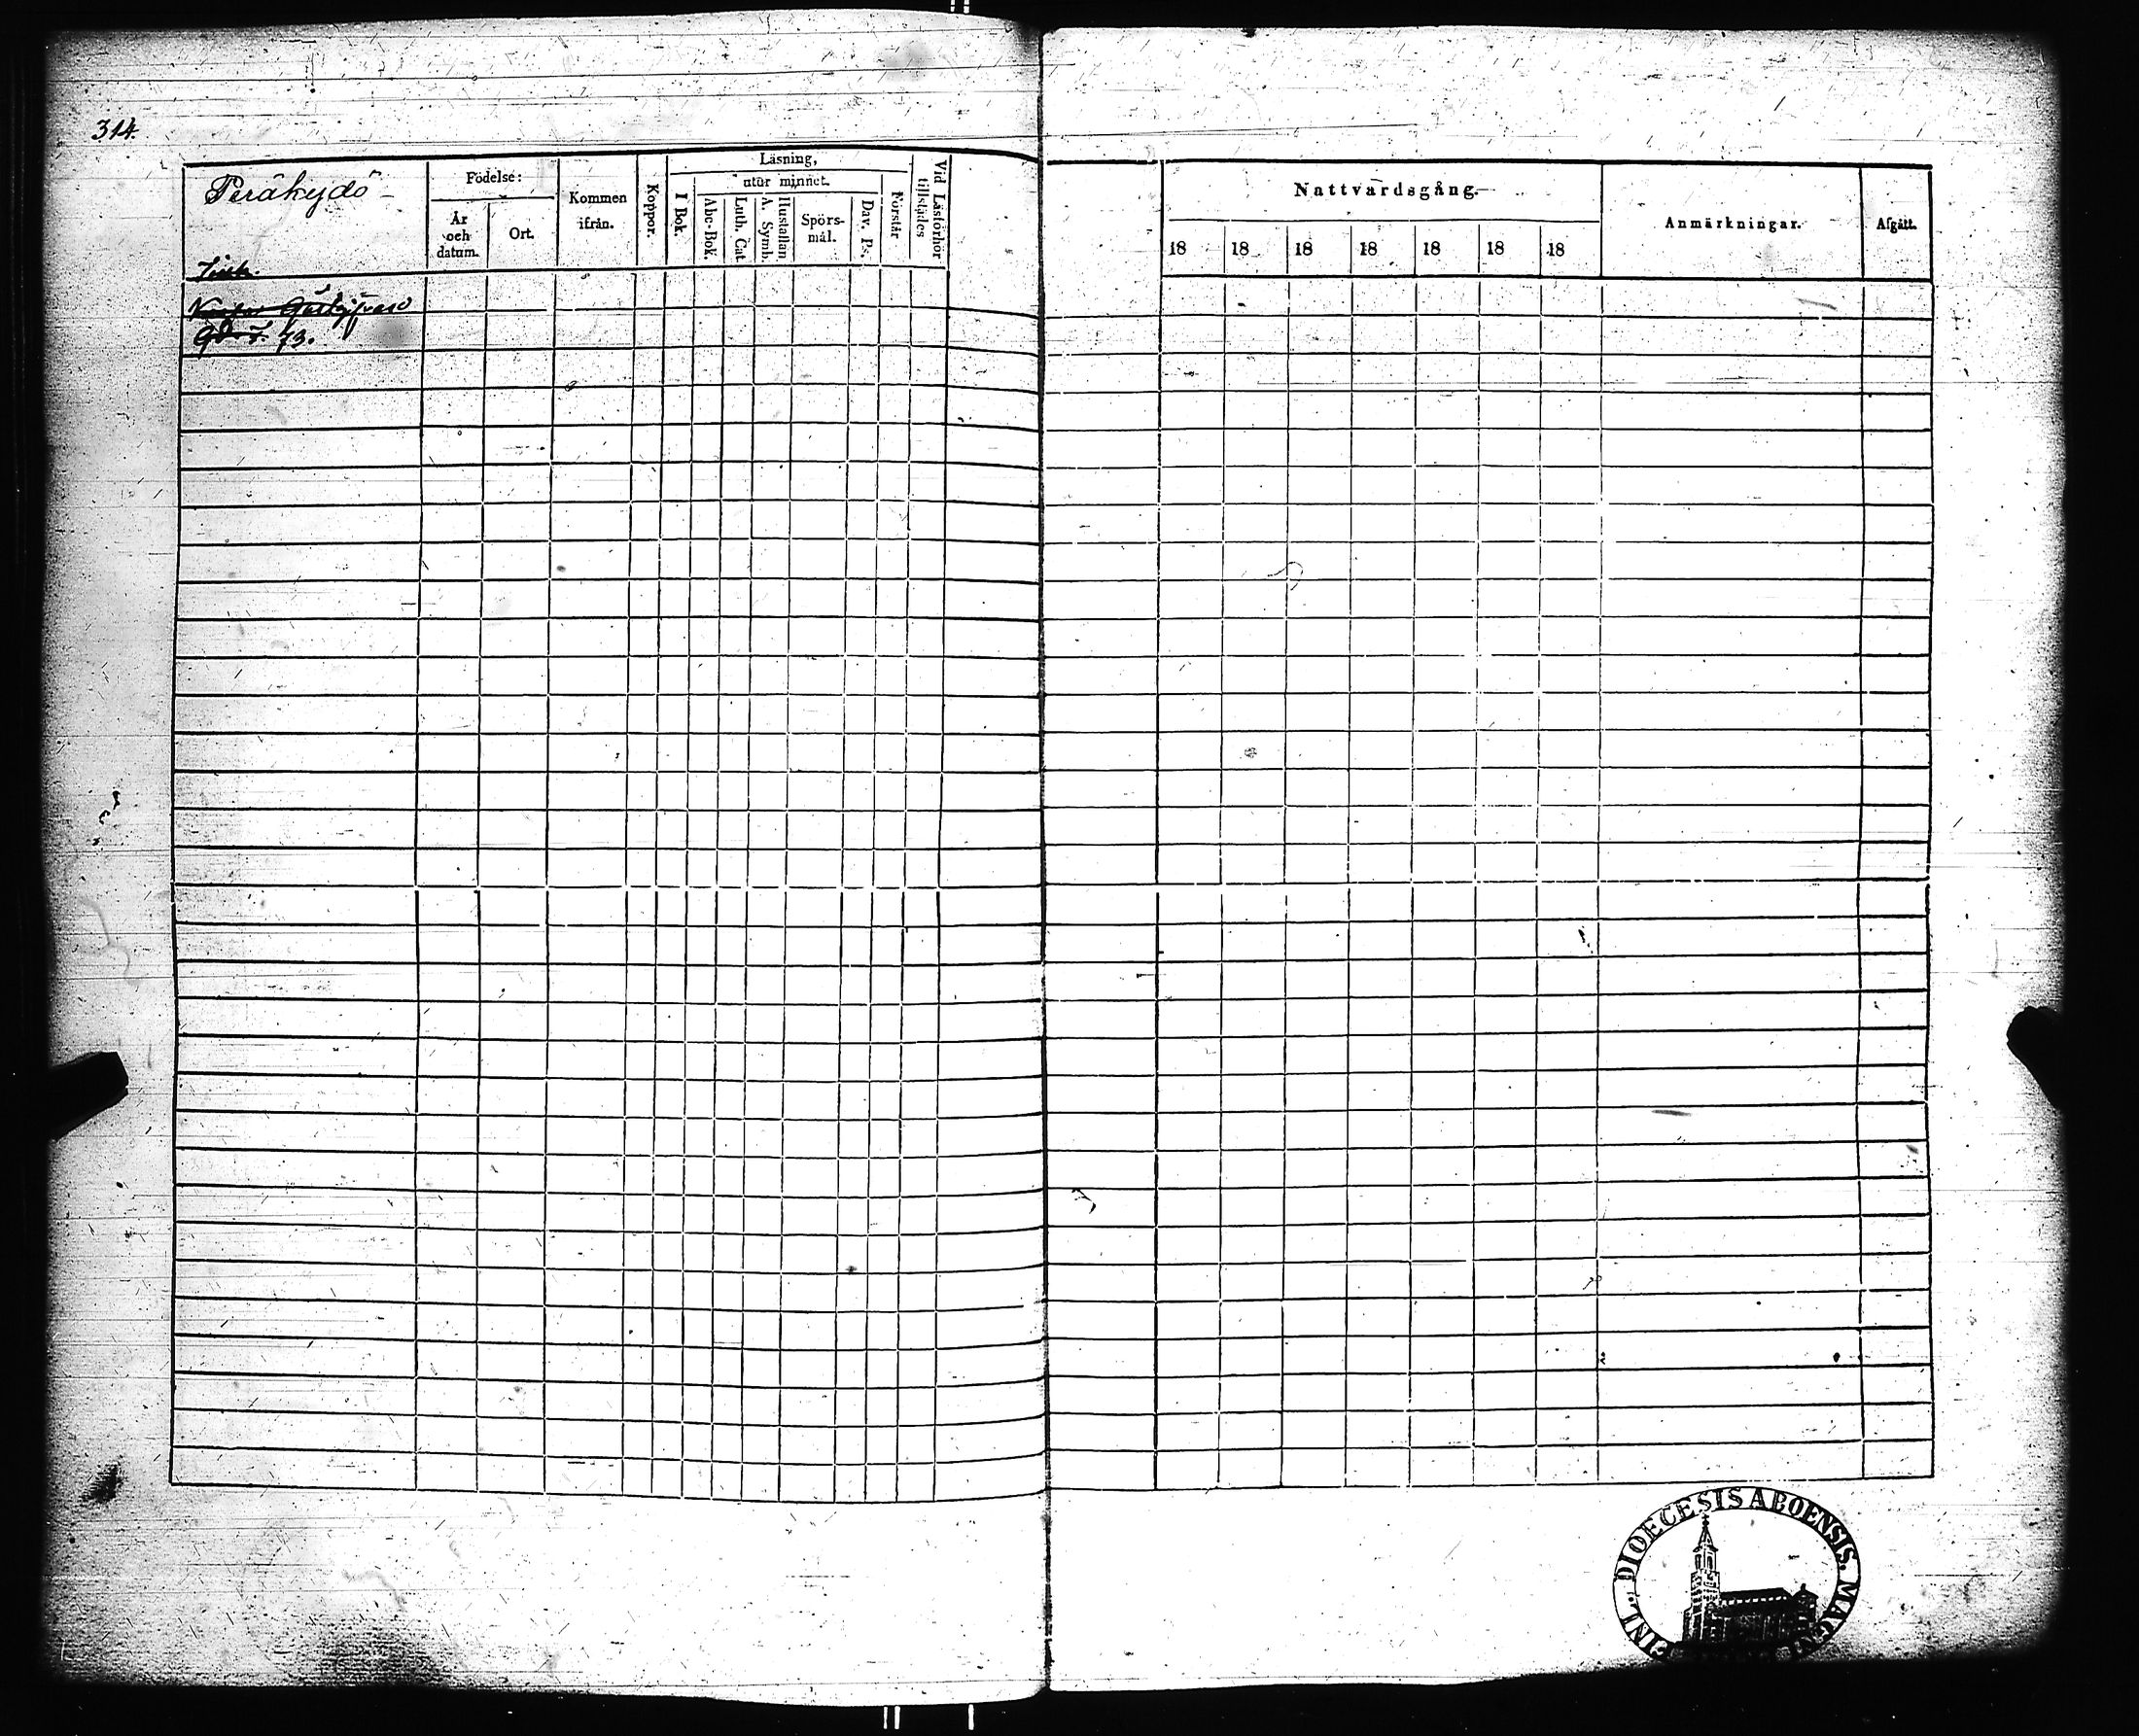 314.
Peräkydö
Födelse:
År och datum.
Ort.
Kommen ifrån.
Koppor.
Läsning,
utur minnet.
I Bok.
Abc-Bok.
Luth. Cat
A. Symb.
Hustaflan
Spörs-
mål.
Dav. P.
Förstår
Vid Läsförhör
tillstädes
Nattvardsgång.
18 18 18 18 18 18 18
Anmärkningar.
Afgått.
DIOECESIS ABOENSIS.